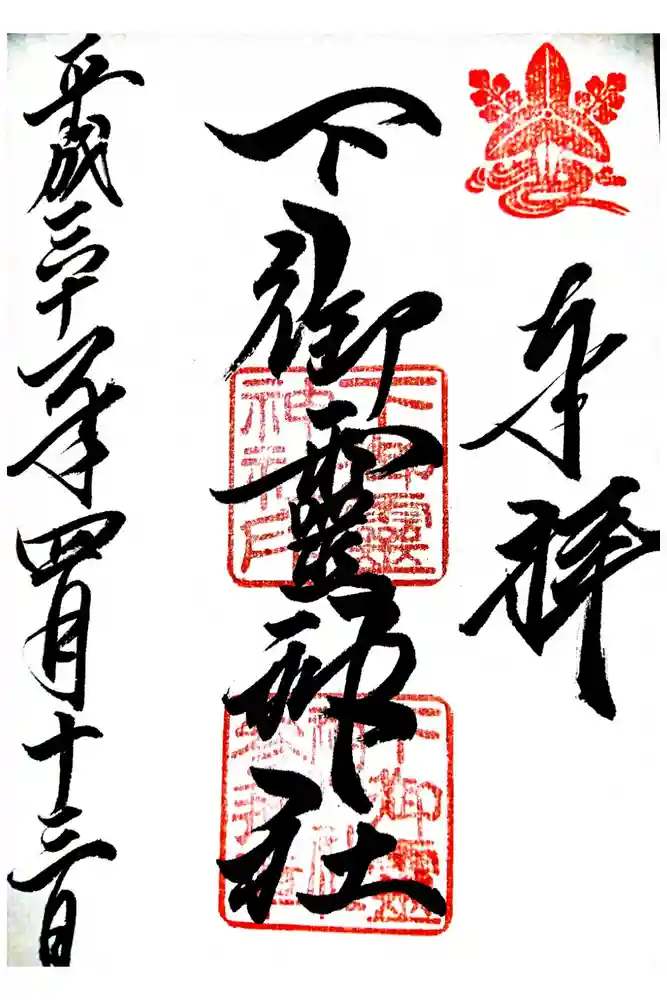 奉拝
下御靈神社
平成三十一年四月十三日
下御靈
神社印
下御靈
神社